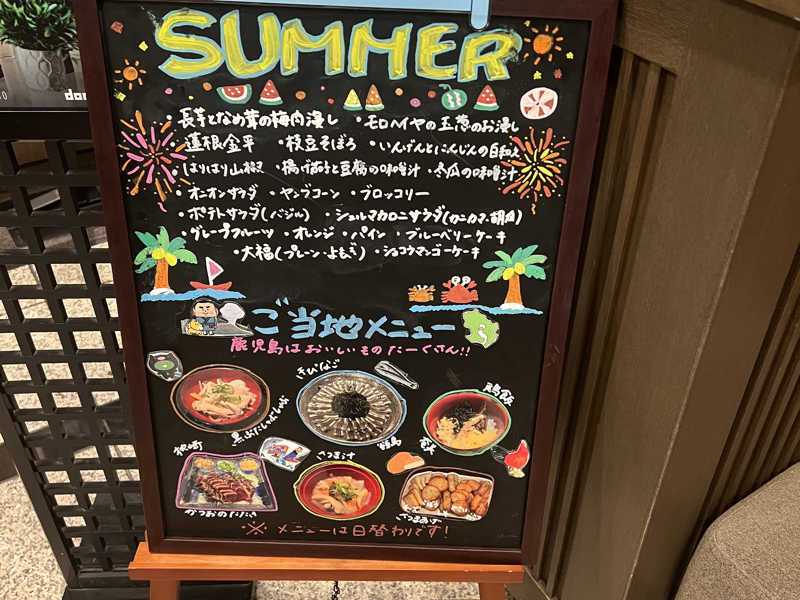 SUMMER
・長芋となめ茸の梅肉浸し ・モロヘイヤの玉葱のお浸し
蓮根金平 ・枝豆そぼろ ・いんげんとにんじんの白和え
・はりはり山椒 ・揚げ茄子と豆腐の味噌汁 ・冬瓜の味噌汁
・オニオンサラダ ・ヤングコーン ・ブロッコリー
・ポテトサラダ(バジル) ・シェルマカロニサラダ(カニカマ・胡瓜)
・グレープフルーツ ・オレンジ ・パイン ・ブルーベリーケーキ
・大福(プレーン・よもぎ) ・ショコラマンゴーケーキ
ご当地メニュー
鹿児島はおいしいものたーくさん!!
きびなご
鶏飯
黒ぶたしゃぶしゃぶ
奄美
枕崎
さつま汁
かつおのたたき
さつまあげ
※メニューは日替わりです!